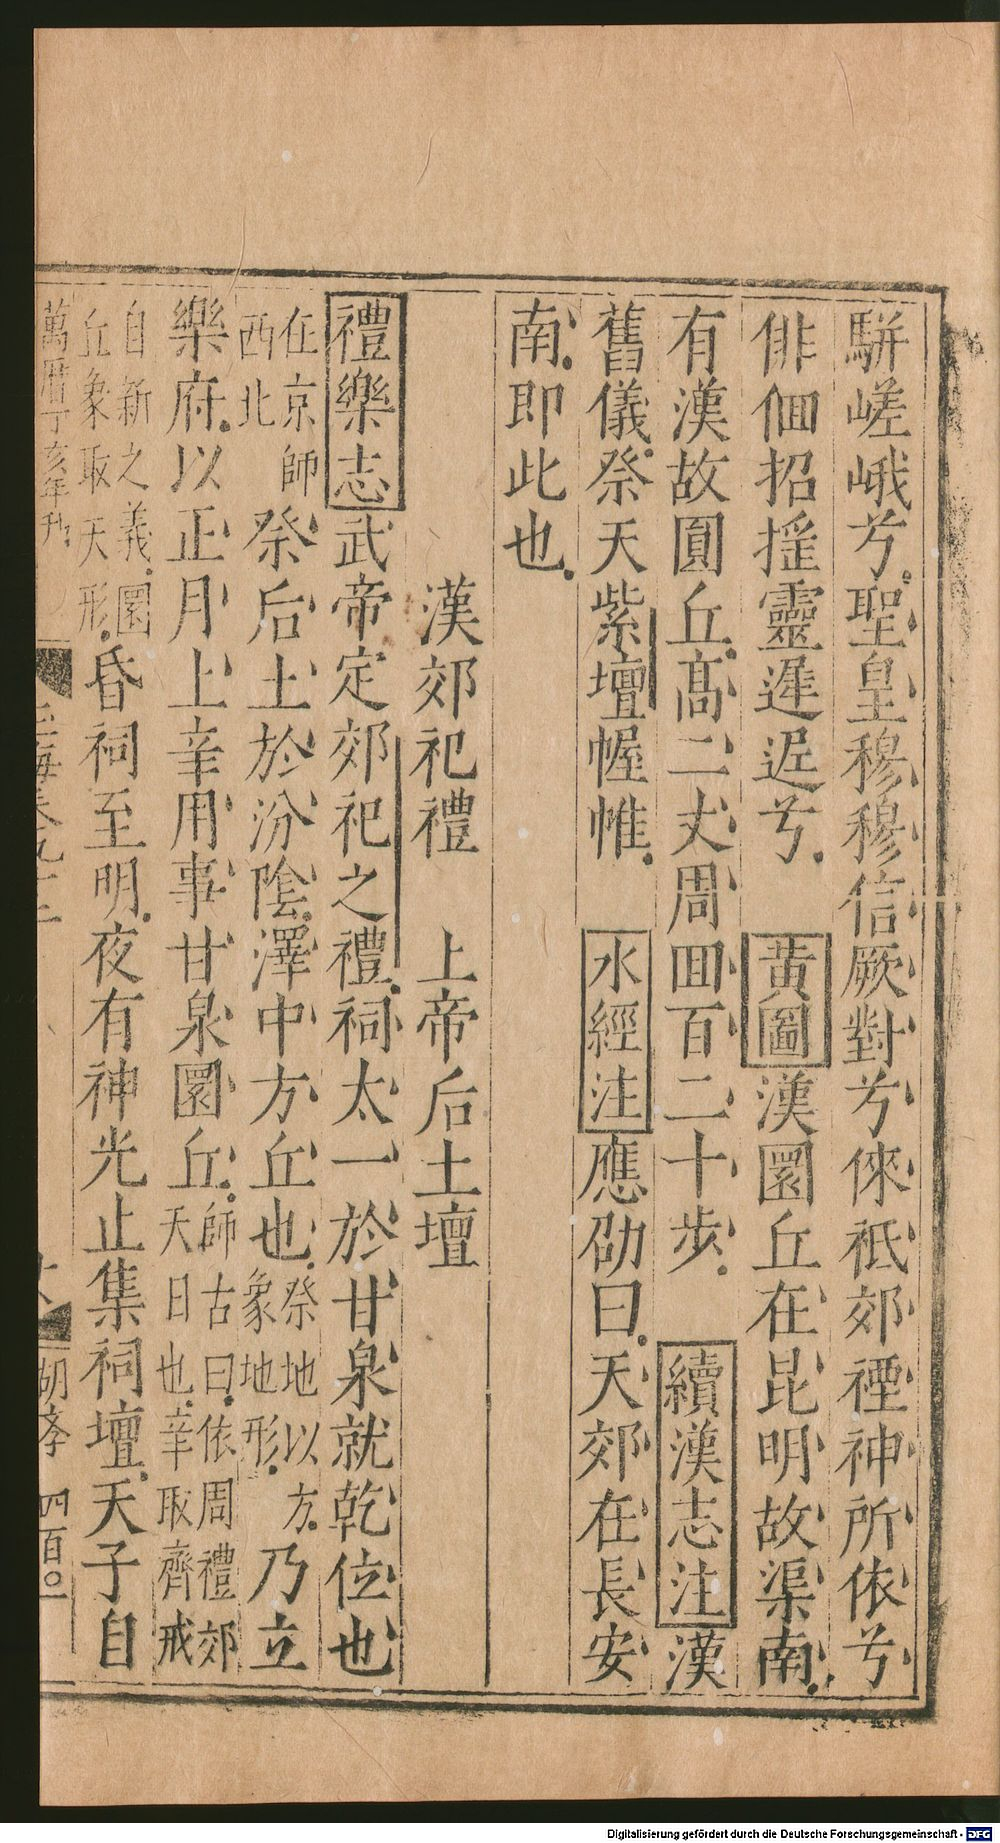 駢嵯峨兮聖皇穆穆信厥對兮倈祗郊禋神所依兮
俳佪招搖靈遲迟兮 黄圖漢圜丘在昆明故渠南
有漢故圓丘髙二丈周囬百二十步 續漢志注漢
舊儀祭天紫壇幄帷 水經注應劭曰天郊在長安
南即此也
漢郊祀禮 上帝后土壇
禮樂志武帝定郊祀之禮祠太一於甘泉就乾位也
在京師
西北
祭后土於汾陰澤中方丘也
祭地以方
象地形
乃立
樂府以正月上辛用事甘泉圜丘
師古曰依周禮郊
天日也辛取齊戒
自新之義圜
丘象取天形
昏祠至明夜有神光止集祠壇天子自
萬曆丁亥年刊
玉海卷九十二
胡孝 四百〇一
Digitalisierung gefördert durch die Deutsche Forschungsgemeinschaft - DFG